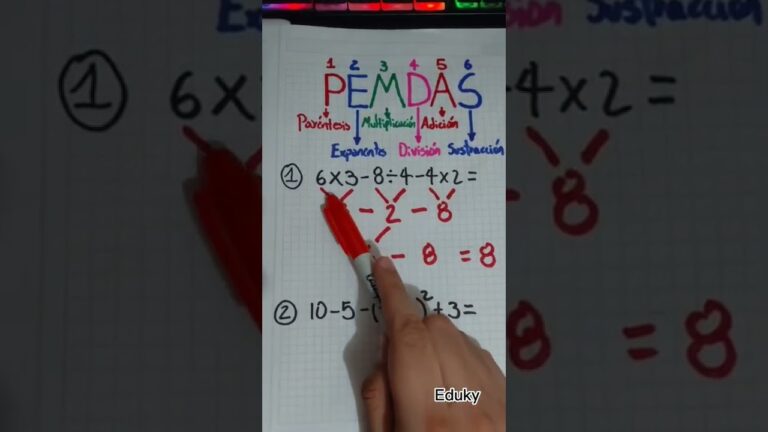 1 2 3 4 5 6
PEMDAS
Paréntesis Multiplicación Adición
Exponentes División Sustracción
① 6×3-8÷4-4×2=
- 2 - 8
- 8 = 8
② 10-5-( )²+3=
Eduky